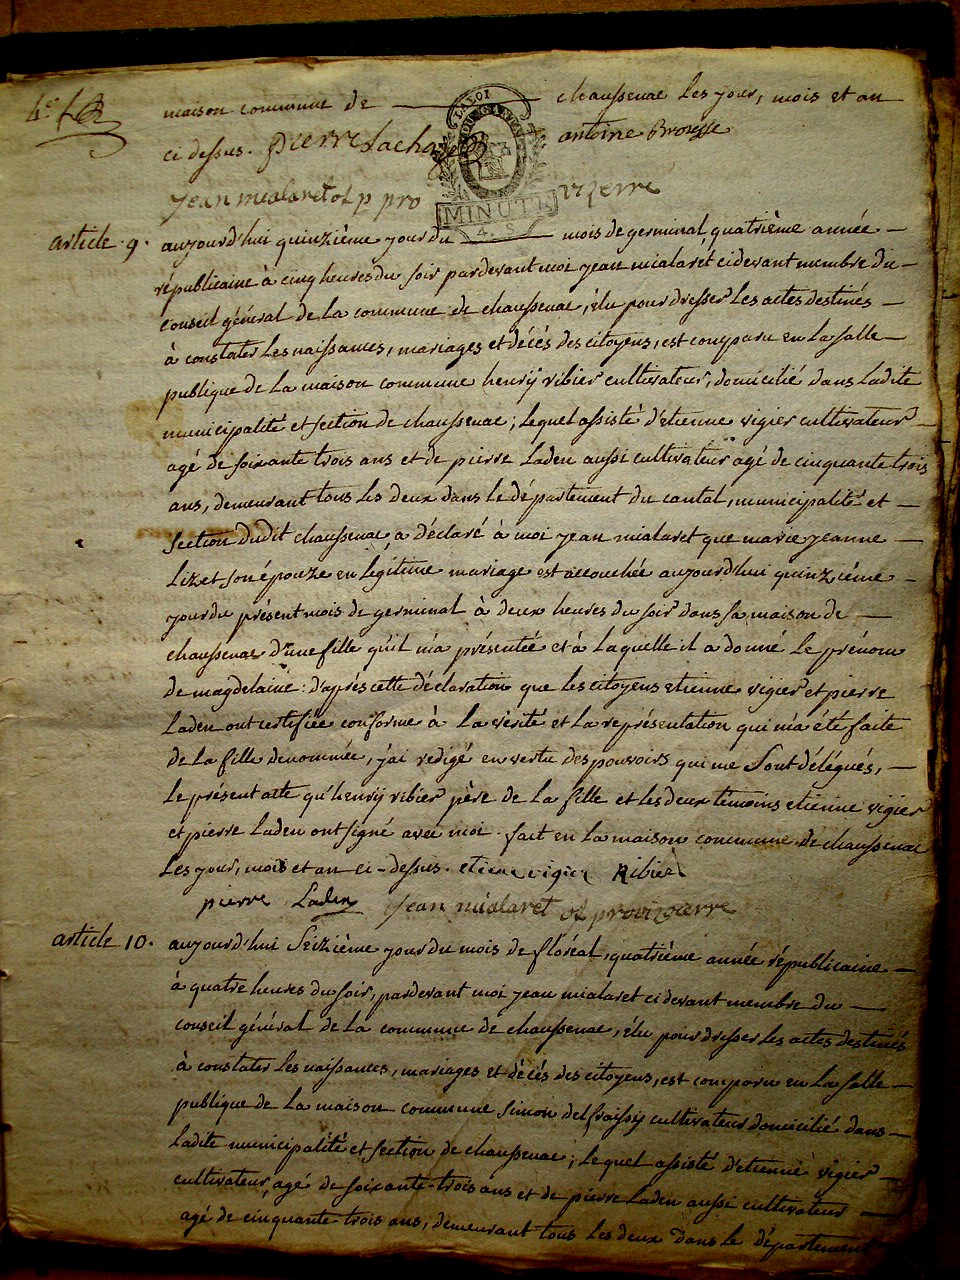 4e
maison commune de chaussenac les jour, mois et an
ci dessus. pierre Lachaze antoine Brousse
LA LOI
jean mialaret of p pro vizerre
MINUTE
4. S
article. 9. aujourd'hui quinzième jour du mois de germinal, quatrième année
républicaine à cinq heures du soir pardevant moi jean mialaret ci devant membre du
conseil général de la commune de chaussenac, élu pour dresser les actes destinés
à constater les naissances, mariages et décés des citoyens, est comparu en la salle
publique de la maison commune henrÿ ribier cultivateur, domicilié dans ladite
municipalité et section de chaussenac; lequel assisté d'etienne vigier cultivateur
agé de soixante trois ans et de pierre Laden aussi cultivateur agé de cinquante trois
ans, demeurant tous les deux dans le département du cantal, municipalité et
section dudit chaussenac, a déclaré à moi jean mialaret que marie jeanne
Lizet son épouze en légitime mariage est accouchée aujourd'hui quinzième
jour du présent mois de germinal à deux heures du soir dans sa maison de
chaussenac d'une fille qu'il m'a présentée et à laquelle il a donné le prénom
de magdelaine: d'après cette déclaration que les citoyens etienne vigier et pierre
Laden ont certifiée conforme à la vérité et la représentation qui m'a été faite
de la fille denommée, j'ai redigé en vertu des pouvoirs qui me sont délégués,
le présent acte qu'henrÿ ribier père de la fille et les deux témoins etienne vigier
et pierre Laden ont signé avec moi. fait en la maison commune de chaussenac
les jour, mois et an ci-dessus. etiene vigier Ribier
pierre Laden jean mialaret of provizoierre
article 10. aujourd'hui seizième jour du mois de floréal, quatrième année républicaine
à quatre heures du soir, pardevant moi jean mialaret ci devant membre du
conseil général de la commune de chaussenac, élu pour dresser les actes destinés
à constater les naissances, mariages et décés des citoyens, est comparu en la salle
publique de la maison commune simon delfraissÿ cultivateur domicilié dans
ladite municipalité et section de chaussenac; lequel assisté d'etienne vigier
cultivateur, agé de soixante-trois ans et de pierre Laden aussi cultivateur
agé de cinquante trois ans, demeurant tous les deux dans le département